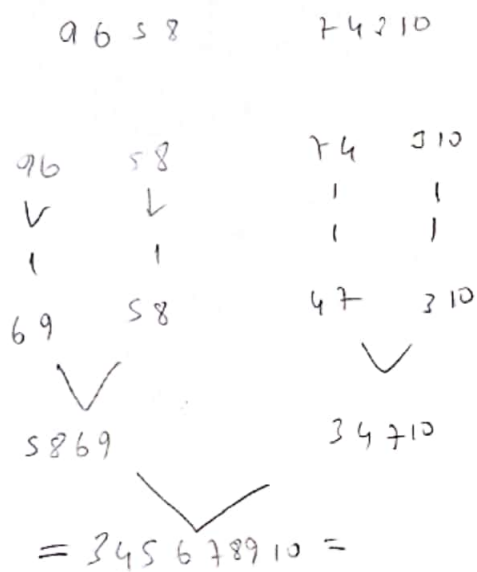 9 6 5 8 7 4 3 10
96 58 74 3 10
69 58 47 3 10
5 8 6 9 3 4 7 10
= 3 4 5 6 7 8 9 10 =